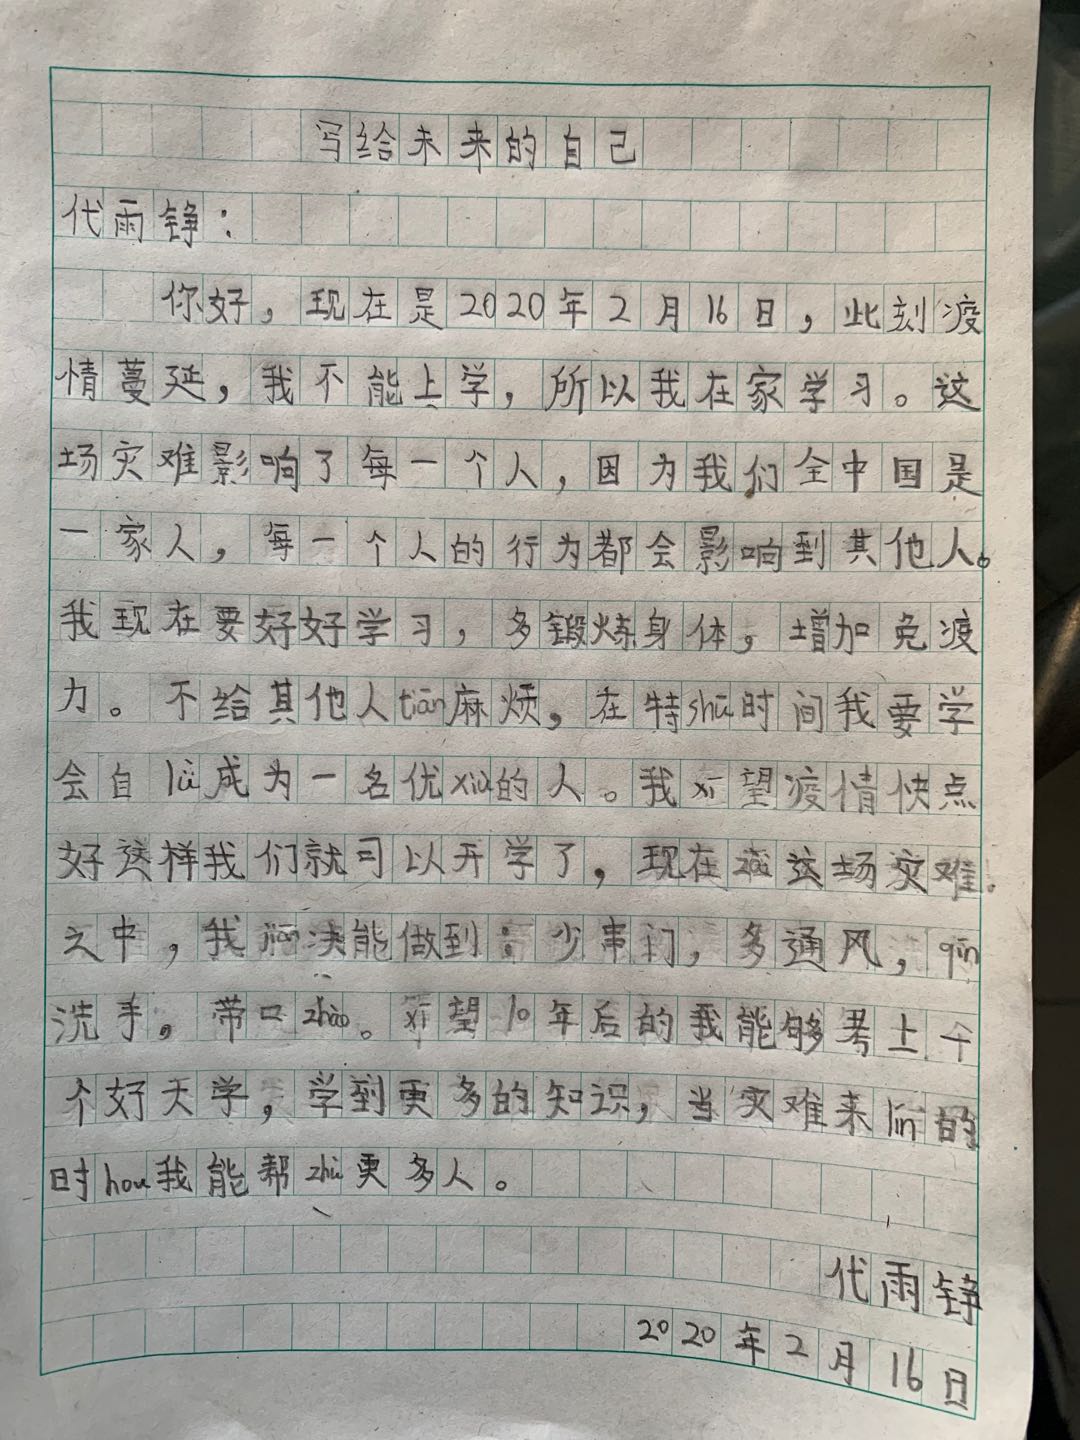 写给未来的自己
代雨铮：
你好，现在是2020年2月16日，此刻疫
情蔓延，我不能上学，所以我在家学习。这
场灾难影响了每一个人，因为我们全中国是
一家人，每一个人的行为都会影响到其他人。
我现在要好好学习，多锻炼身体，增加免疫
力。不给其他人tiān麻烦，在特shū时间我要学
会自lǜ成为一名优xiù的人。我xī望疫情快点
好这样我们就可以开学了，现在这场灾难
之中，我jiān决能做到：少串门，多通风，qín
洗手，带口zhào。xī望10年后的我能够考上个
个好大学，学到更多的知识，当灾难来lín的
时hou我能帮zhù更多人。
代雨铮
2020年2月16日